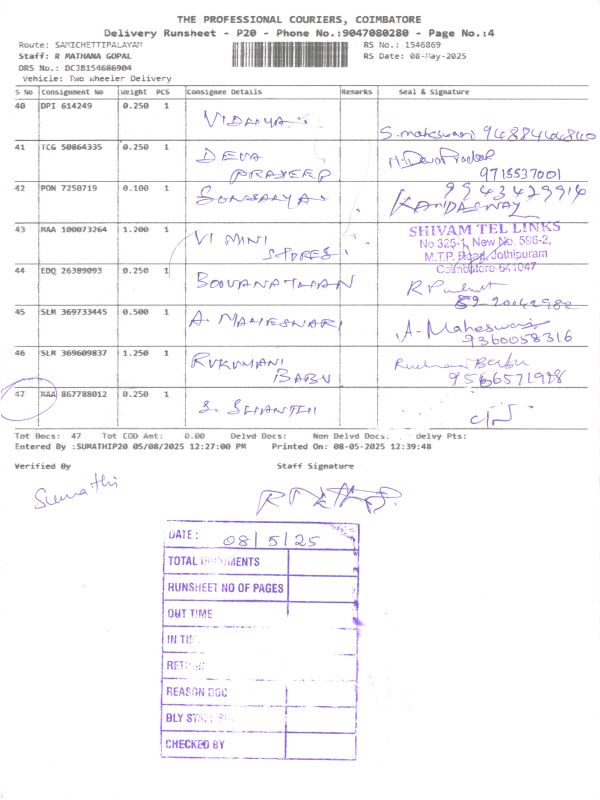 THE PROFESSIONAL COURIERS, COIMBATORE
Delivery Runsheet - P20 - Phone No.:9047080280 - Page No.:4
Route: SAMICHETTIPALAYAM RS No.: 1546869
Staff: R MATHANA GOPAL RS Date: 08-May-2025
DRS No.: DCJB154686904
Vehicle: Two Wheeler Delivery
S No Consignment No Weight PCS Consignee Details Remarks Seal & Signature
40 DPI 614249 0.250 1
VIDHYA S. maheswari 9488464840
41 TCG 50864335 0.250 1
DEVA
PRAVEEP 9715537001
42 PON 7250719 0.100 1 9943429914
KANDASWAY
43 MAA 100073264 1.200 1 SHIVAM TEL LINKS
VI MINI No 325-1, New No. 596-2,
STORES M.T.P. Road, Jothipuram
Coimbatore-641047
44 EDQ 26389093 0.250 1
BOOVANATHAN
45 SLM 369733445 0.500 1
A. MAHESWARI A. Maheswari
9360058316
46 SLM 369609837 1.250 1
RUKUMANI
BABU 9566571928
47 MAA 867788012 0.250 1
S. SHANTHI
Tot Docs: 47 Tot COD Amt: 0.00 Delvd Docs: Non Delvd Docs. Delvy Pts:
Entered By :SUMATHIP20 05/08/2025 12:27:00 PM Printed On: 08-05-2025 12:39:48
Verified By Staff Signature
Sumathi
DATE : 08/5/25
TOTAL DOCUMENTS
RUNSHEET NO OF PAGES
OUT TIME
IN TIME
REASON DOC
CHECKED BY